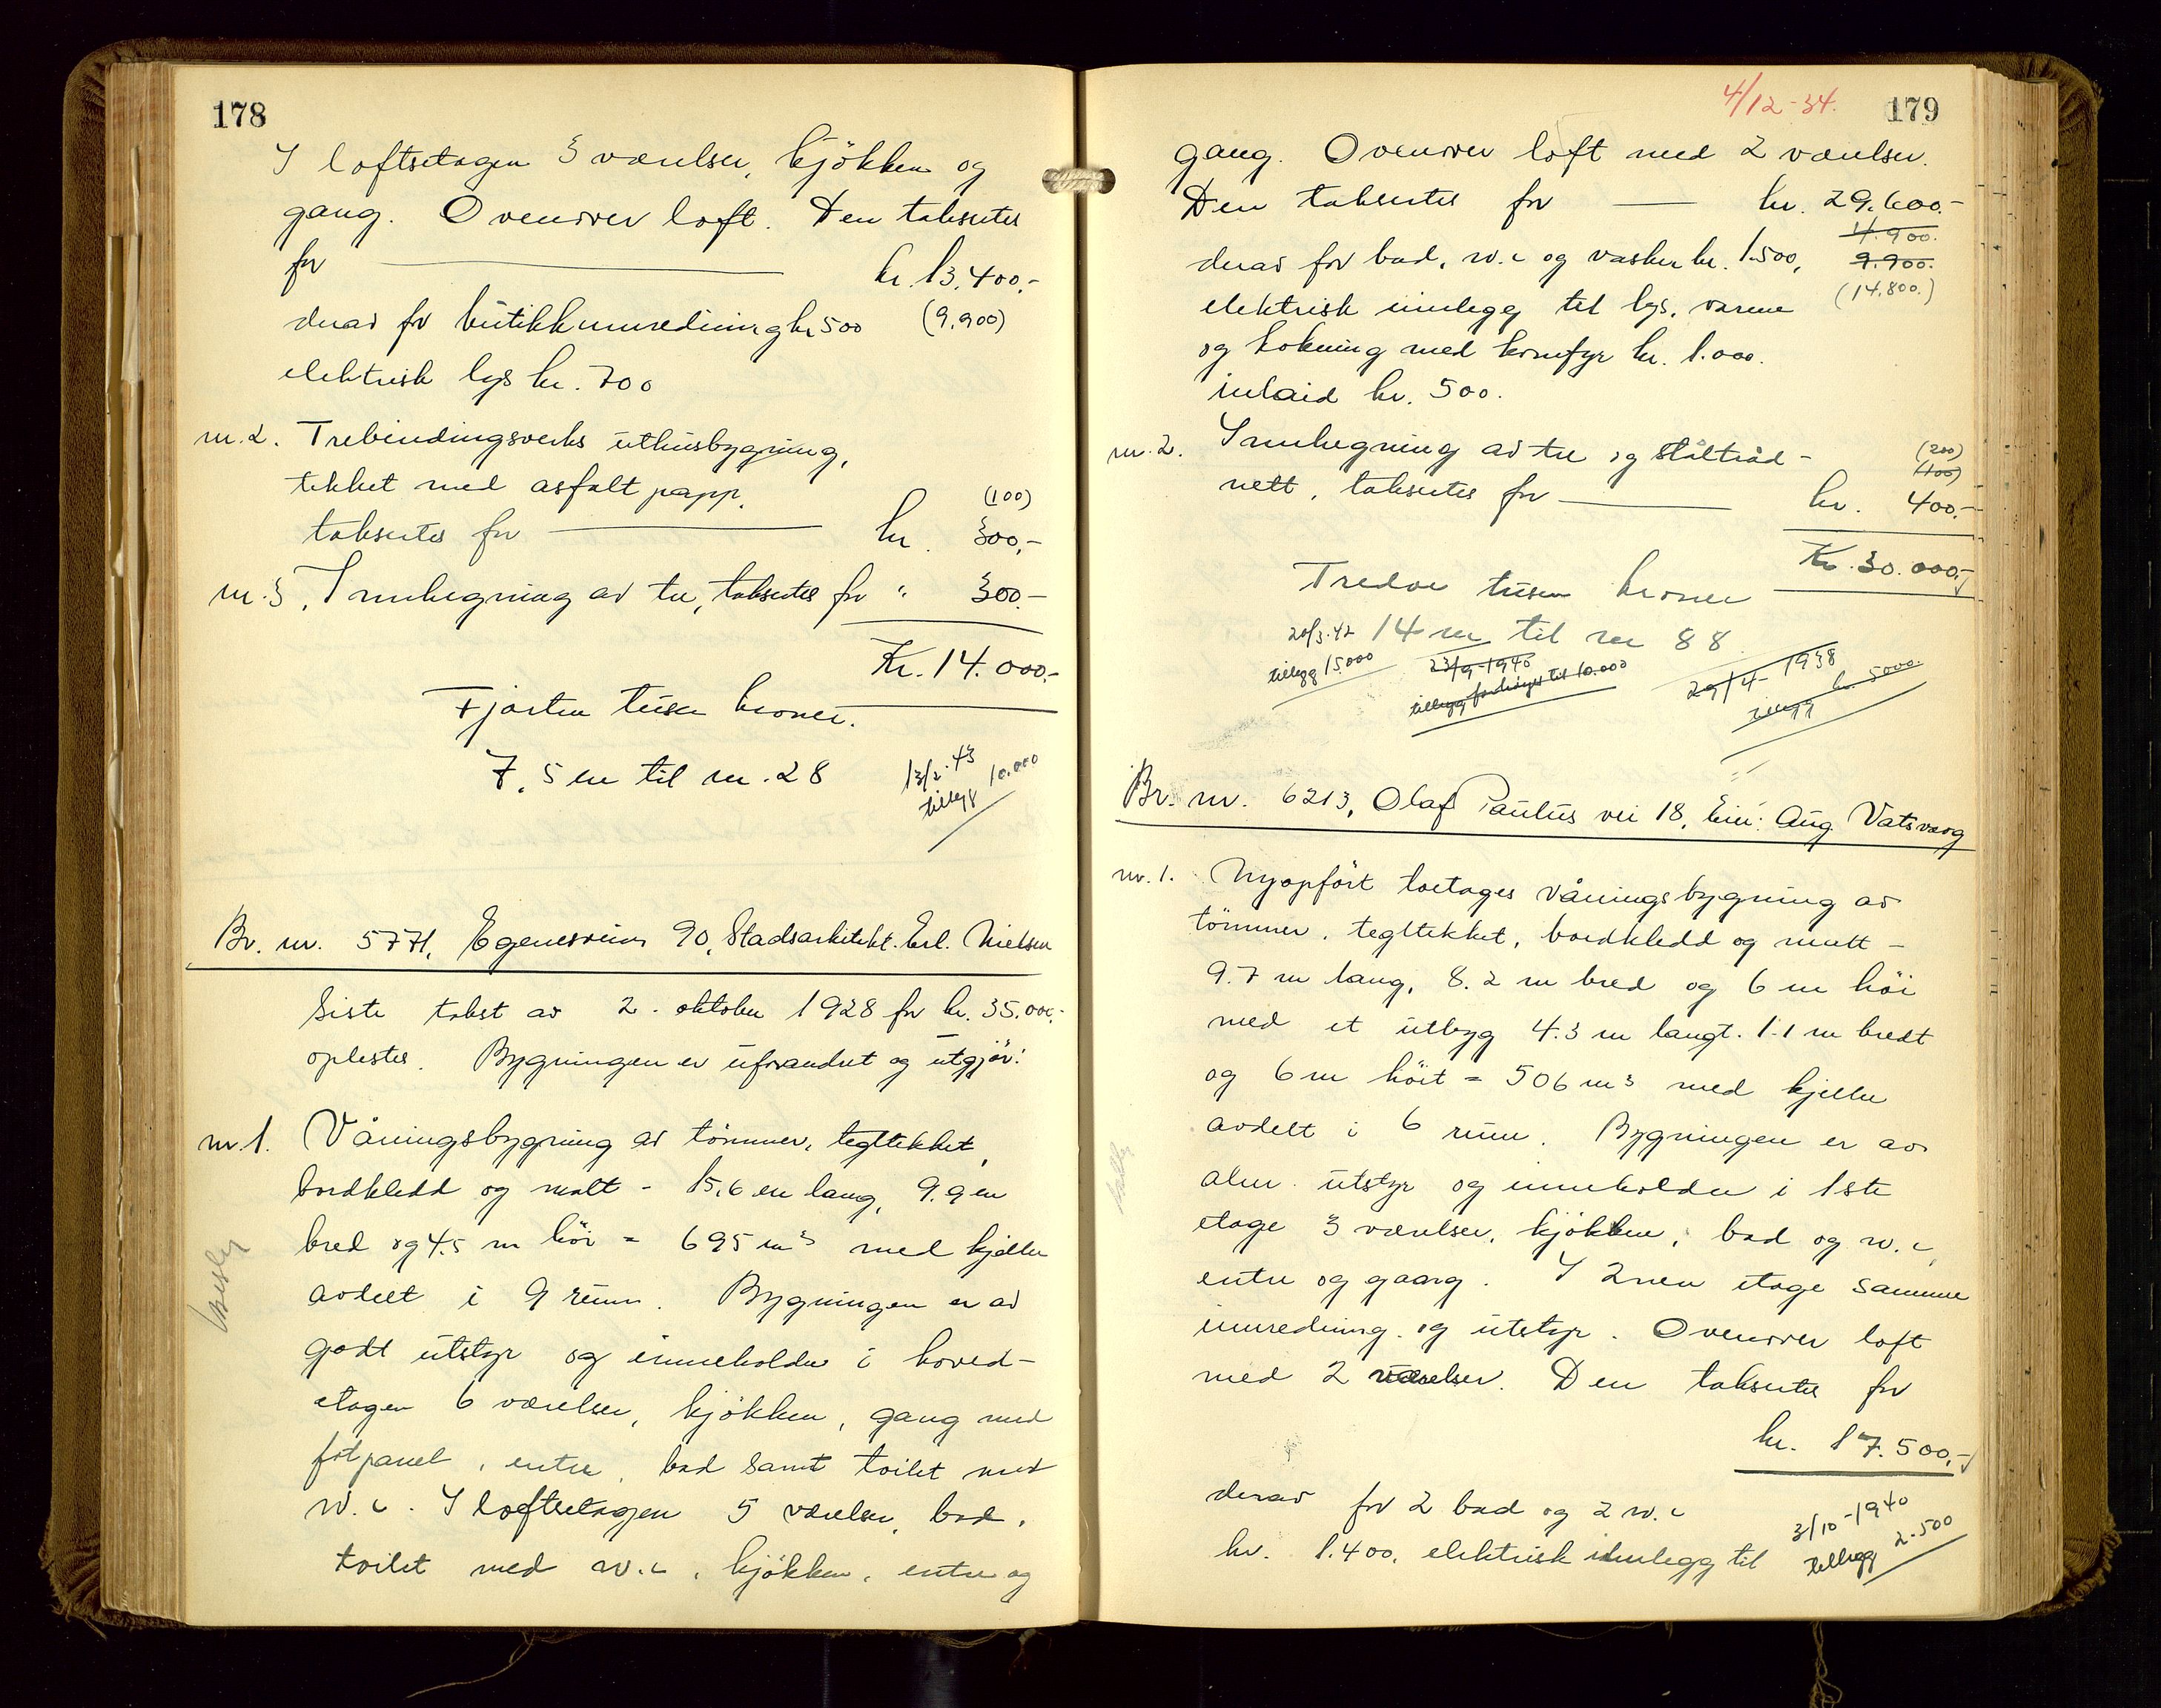 178
I loftsetagen 3 værelser, kjökken og
gang. Ovenover loft. Den taksertes
for kr. 13.400.-
derav for butikkinnredning kr 500 (9.900)
elektrisk lys kr. 700
nr. 2. Trebindingsverks uthusbygning,
tekket med asfalt papp. (100)
taksertes for kr. 300,-
nr. 3. Innhegning av tre, taksertes for " 300.-
Kr. 14.000.-
Fjorten tusen kroner.
7,5 m til nr. 28
13/2-43
tillegg 10.000
Br. nr. 5771, Egenesveien 90, Stadsarkitekt Erl. Nielsen
Siste takst av 2. oktober 1928 for kr. 35.000.-
oplestes. Bygningen er uforandret og utgjör:
nr. 1. Våningsbygning av tömmer, tegltekket,
bordkledd og malt - 15,6 m lang, 9.9 m
bred og 4.5 m höi = 695 m³ med kjeller
avdelt i 9 rum. Bygningen er av
godt utstyr og inneholder i hoved-
etagen 6 værelser, kjökken, gang med
fotpanel, entre, bad samt toilet med
w.c. I loftsetagen 5 værelser, bad,
toilet med w.c., kjökken, entre og
4/12-34. 179
gang. Ovenover loft med 2 værelser.
Den taksertes for kr. 29.600.-
11.900.
derav for bad, w.c og vasker kr. 1.500, 9.900.
elektrisk innlegg til lys, varme (14.800.)
og kokning med komfyr kr. 1.000.
inlaid kr. 500.
nr. 2. Innhegning av tre og ståltråd- (200)
(100)
nett, taksertes for kr. 400.-
Kr. 30.000,-
Tredve tusen kroner
14 m til nr 88
20/3-42
tillegg 15.000
23/9-1940
tillegg forhöiges til 10.000
29/4-1938
tillegg kr. 5000.
Br. nr. 6213, Olaf Paulus vei 18, Eier: Aug. Vatsvaog
nr. 1. Nyopfört toetages våningsbygning av
tömmer, tegltekket, bordkledd og malt -
9.7 m lang, 8.2 m bred og 6 m höi
med et utbygg 4.3 m langt. 1.1 m bredt
og 6 m höit = 506 m³ med kjeller
avdelt i 6 rum. Bygningen er av
alm. utstyr og inneholder i 1ste
etage 3 værelser, kjökken, bad og w.c,
entre og gaang. I 2nen etage samme
innredning og utstyr. Ovenover loft
med 2 værelser. Den taksertes for
kr. 17.500,-
derav for 2 bad og 2 w.c
kr. 1.400, elektrisk innlegg til
3/10-1940
tillegg 2.500